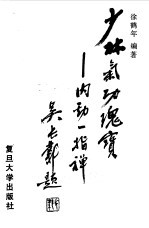 徐鹤年 编著
少林氣功瑰寶
—内劲一指禅
吴长戴题
复旦大学出版社